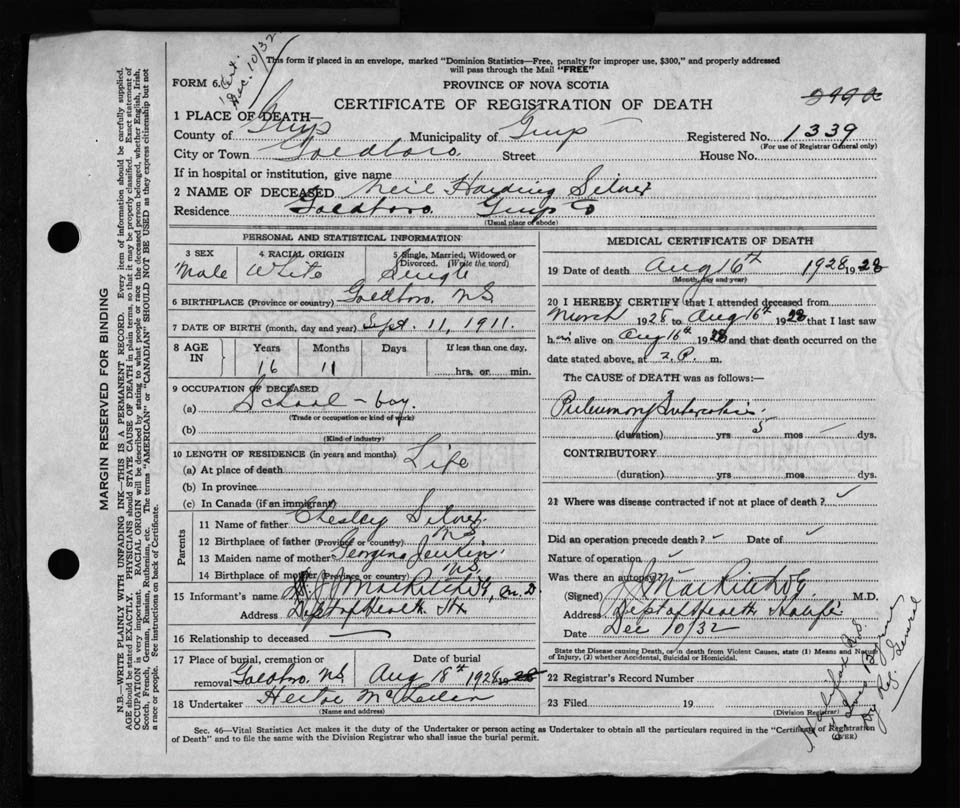 This form if placed in an envelope, marked "Dominion Statistics—Free, penalty for improper use, $300," and properly addressed
will pass through the Mail "FREE"
FORM 6.
Cert.
Dec. 10/32
PROVINCE OF NOVA SCOTIA
CERTIFICATE OF REGISTRATION OF DEATH
1 PLACE OF DEATH—
County of Guys Municipality of Guys Registered No. 1339
(For use of Registrar General only)
City or Town Goldboro Street House No.
If in hospital or institution, give name
2 NAME OF DECEASED Neil Harding Silver
Residence Goldboro Guys Co
(Usual place of abode)
PERSONAL AND STATISTICAL INFORMATION
3 SEX 4 RACIAL ORIGIN 5 Single, Married, Widowed or
Divorced. (Write the word)
Male White Single
6 BIRTHPLACE (Province or country) Goldboro N.S.
7 DATE OF BIRTH (month, day and year) Sept. 11, 1911.
8 AGE IN Years Months Days If less than one day,
16 11 hrs. or min.
9 OCCUPATION OF DECEASED
(a) School-boy.
(Trade or occupation or kind of work)
(b)
(Kind of industry)
10 LENGTH OF RESIDENCE (in years and months) Life
(a) At place of death
(b) In province
(c) In Canada (if an immigrant)
Parents
11 Name of father Chesley Silver
12 Birthplace of father (Province or country) N.S.
13 Maiden name of mother Georgina Jenkin
14 Birthplace of mother (Province or country) N.S.
15 Informant's name J. MacRitchie, M.D
Address Dept of Health Hx
16 Relationship to deceased
17 Place of burial, cremation or Date of burial
removal Goldboro N.S. Aug 18th 1928
18 Undertaker Hector
(Name and address)
MEDICAL CERTIFICATE OF DEATH
19 Date of death Aug 16th 1928 1928
(Month, day and year)
20 I HEREBY CERTIFY that I attended deceased from
March 1928 to Aug 16th 1928 that I last saw
him alive on Aug 16th 1928 and that death occurred on the
date stated above, at 2. P. m.
The CAUSE of DEATH was as follows:—
Pulmonary Tuberculosis
(duration) yrs 5 mos — dys.
CONTRIBUTORY
(duration) yrs mos dys.
21 Where was disease contracted if not at place of death?
Did an operation precede death? Date of
Nature of operation
Was there an autopsy?
(Signed) J MacRitchie M.D.
Address Dept of Health Halifx
Date Dec 10/32
State the Disease causing Death, or in death from Violent Causes, state (1) Means and Nature
of Injury, (2) whether Accidental, Suicidal or Homicidal.
22 Registrar's Record Number
23 Filed 19
(Division Registrar)
Halifax
Dy Reg. General
Sec. 46—Vital Statistics Act makes it the duty of the Undertaker or person acting as Undertaker to obtain all the particulars required in the "Certificate of Registration
of Death" and to file the same with the Division Registrar who shall issue the burial permit. (OVER)
MARGIN RESERVED FOR BINDING
N.B.—WRITE PLAINLY WITH UNFADING INK—THIS IS A PERMANENT RECORD. Every item of information should be carefully supplied.
AGE should be stated EXACTLY. PHYSICIANS should STATE CAUSE OF DEATH in plain terms, so that it may be properly classified. Exact statement of
OCCUPATION is very important. RACIAL ORIGIN will be described by stating to what people or race the deceased person belonged, whether English, Irish,
Scotch, French, German, Russian, Ruthenian, etc. The terms "AMERICAN" or "CANADIAN" SHOULD NOT BE USED as they express citizenship but not
a race or people. See instructions on back of Certificate.